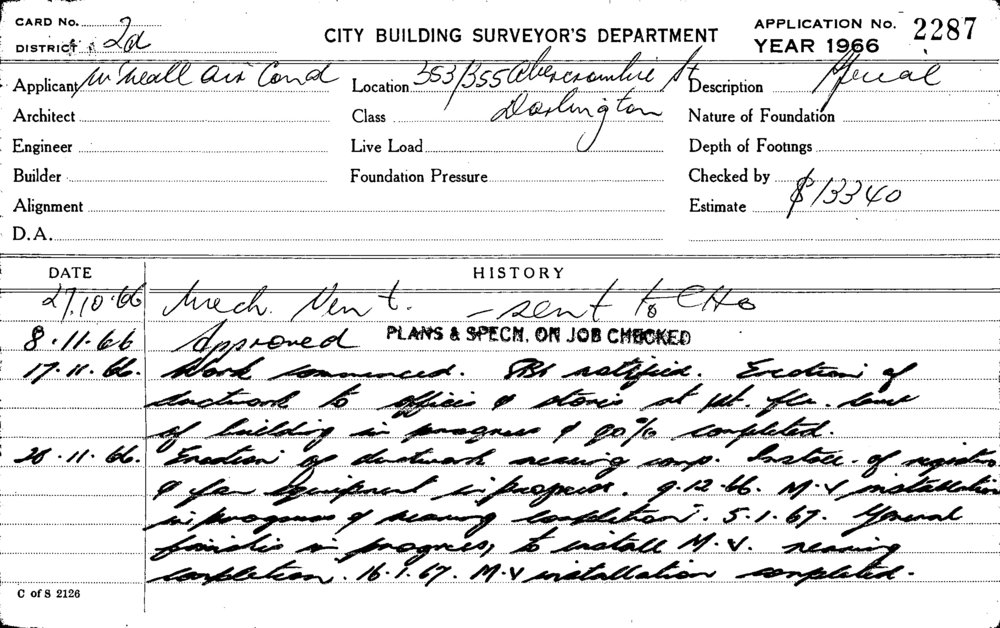 CARD No. 2d
DISTRICT
CITY BUILDING SURVEYOR'S DEPARTMENT
APPLICATION No. 2287
YEAR 1966
Applicant McNeall Air Cond
Location 353/355 Abercrombie St
Description Special
Architect
Class Darlington
Nature of Foundation
Engineer
Live Load
Depth of Footings
Builder
Foundation Pressure
Checked by
Alignment
Estimate $13340
D.A.
DATE HISTORY
27.10.66 Mech. Vent. - sent to CHO
8.11.66 Approved PLANS & SPECN. ON JOB CHECKED
17.11.66. Work commenced. notified. Erection of
ductwork to offices & stores at flr.
of building in progress & 90% completed.
28.11.66. Erection of ductwork nearing comp. Install. of registers
& fan equipment in progress. 9.12.66. M.V installation
in progress & nearing completion. 5.1.67. General
finishes in progress, to install M.V. nearing
completion. 16.1.67. M.V installation completed.
C of S 2126